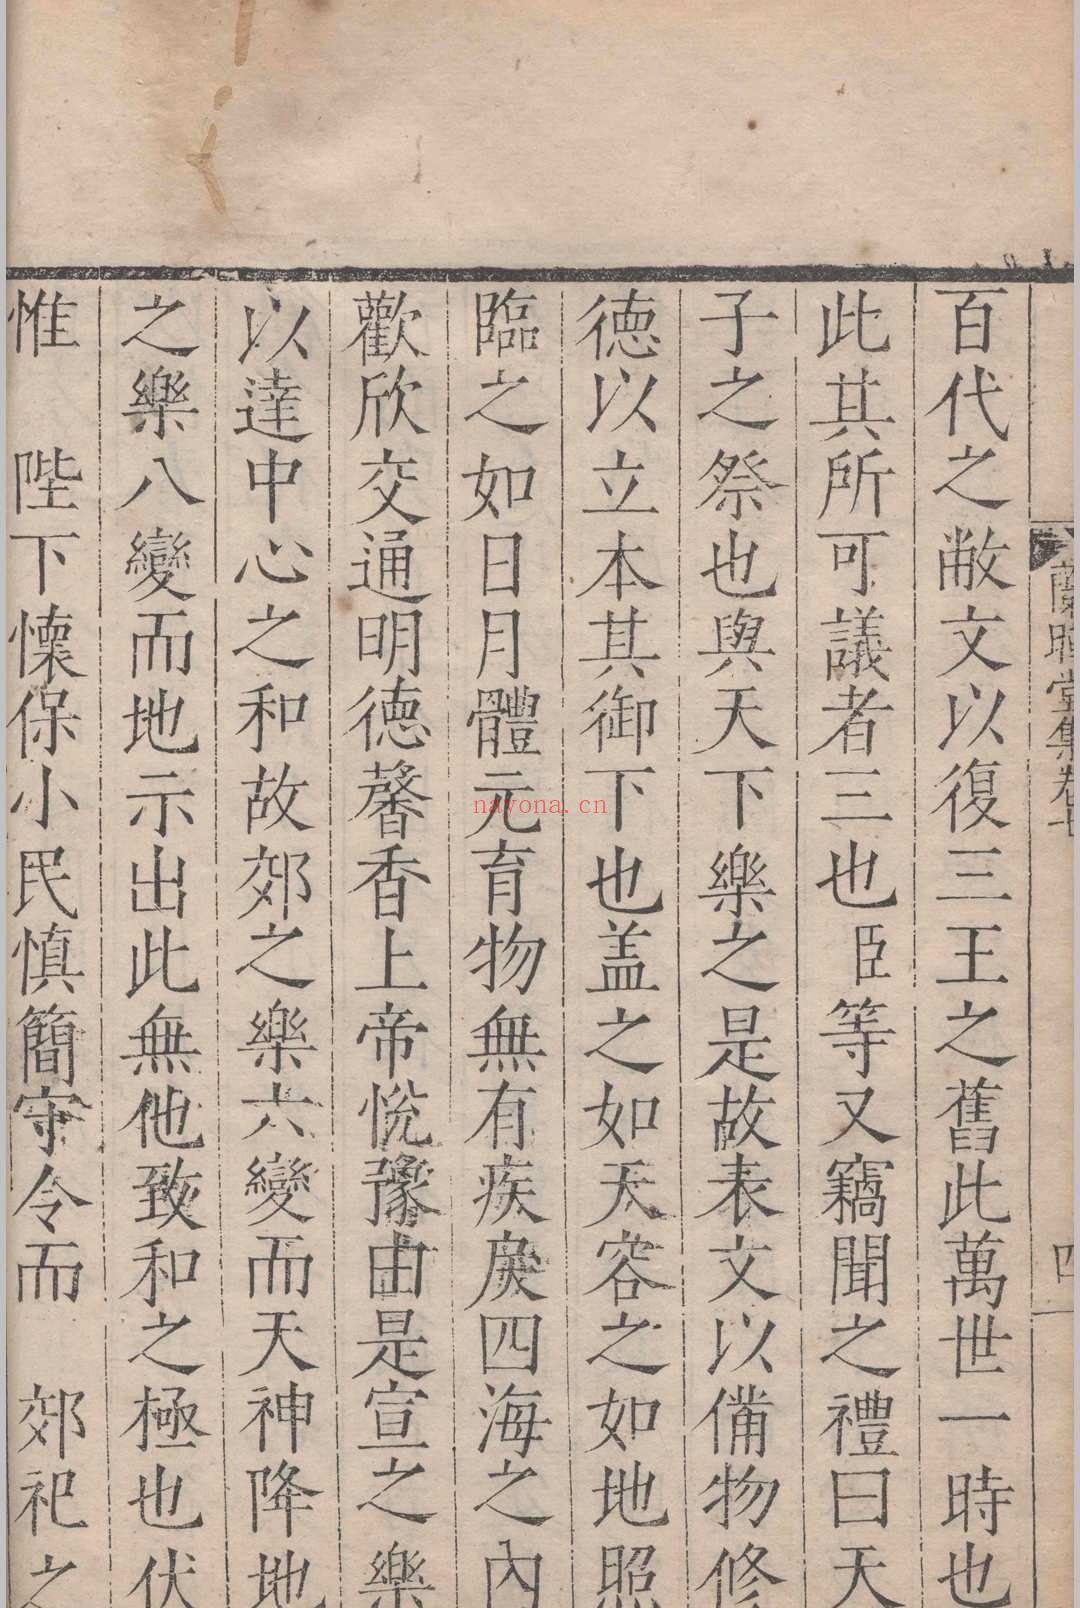 百代之敝文以復三王之舊此萬世一時也
此其所可議者三也臣等又竊聞之禮曰天
子之祭也與天下樂之是故表文以備物修
德以立本其御下也盖之如天容之如地照
臨之如日月體元育物無有疾戾四海之內
歡欣交通明德馨香上帝悅豫由是宣之樂
以達中心之和故郊之樂六變而天神降地
之樂八變而地示出此無他致和之極也伏
惟 陛下懷保小民慎簡守令而 郊祀之
蘭暉堂集卷七
四
nayona.cn